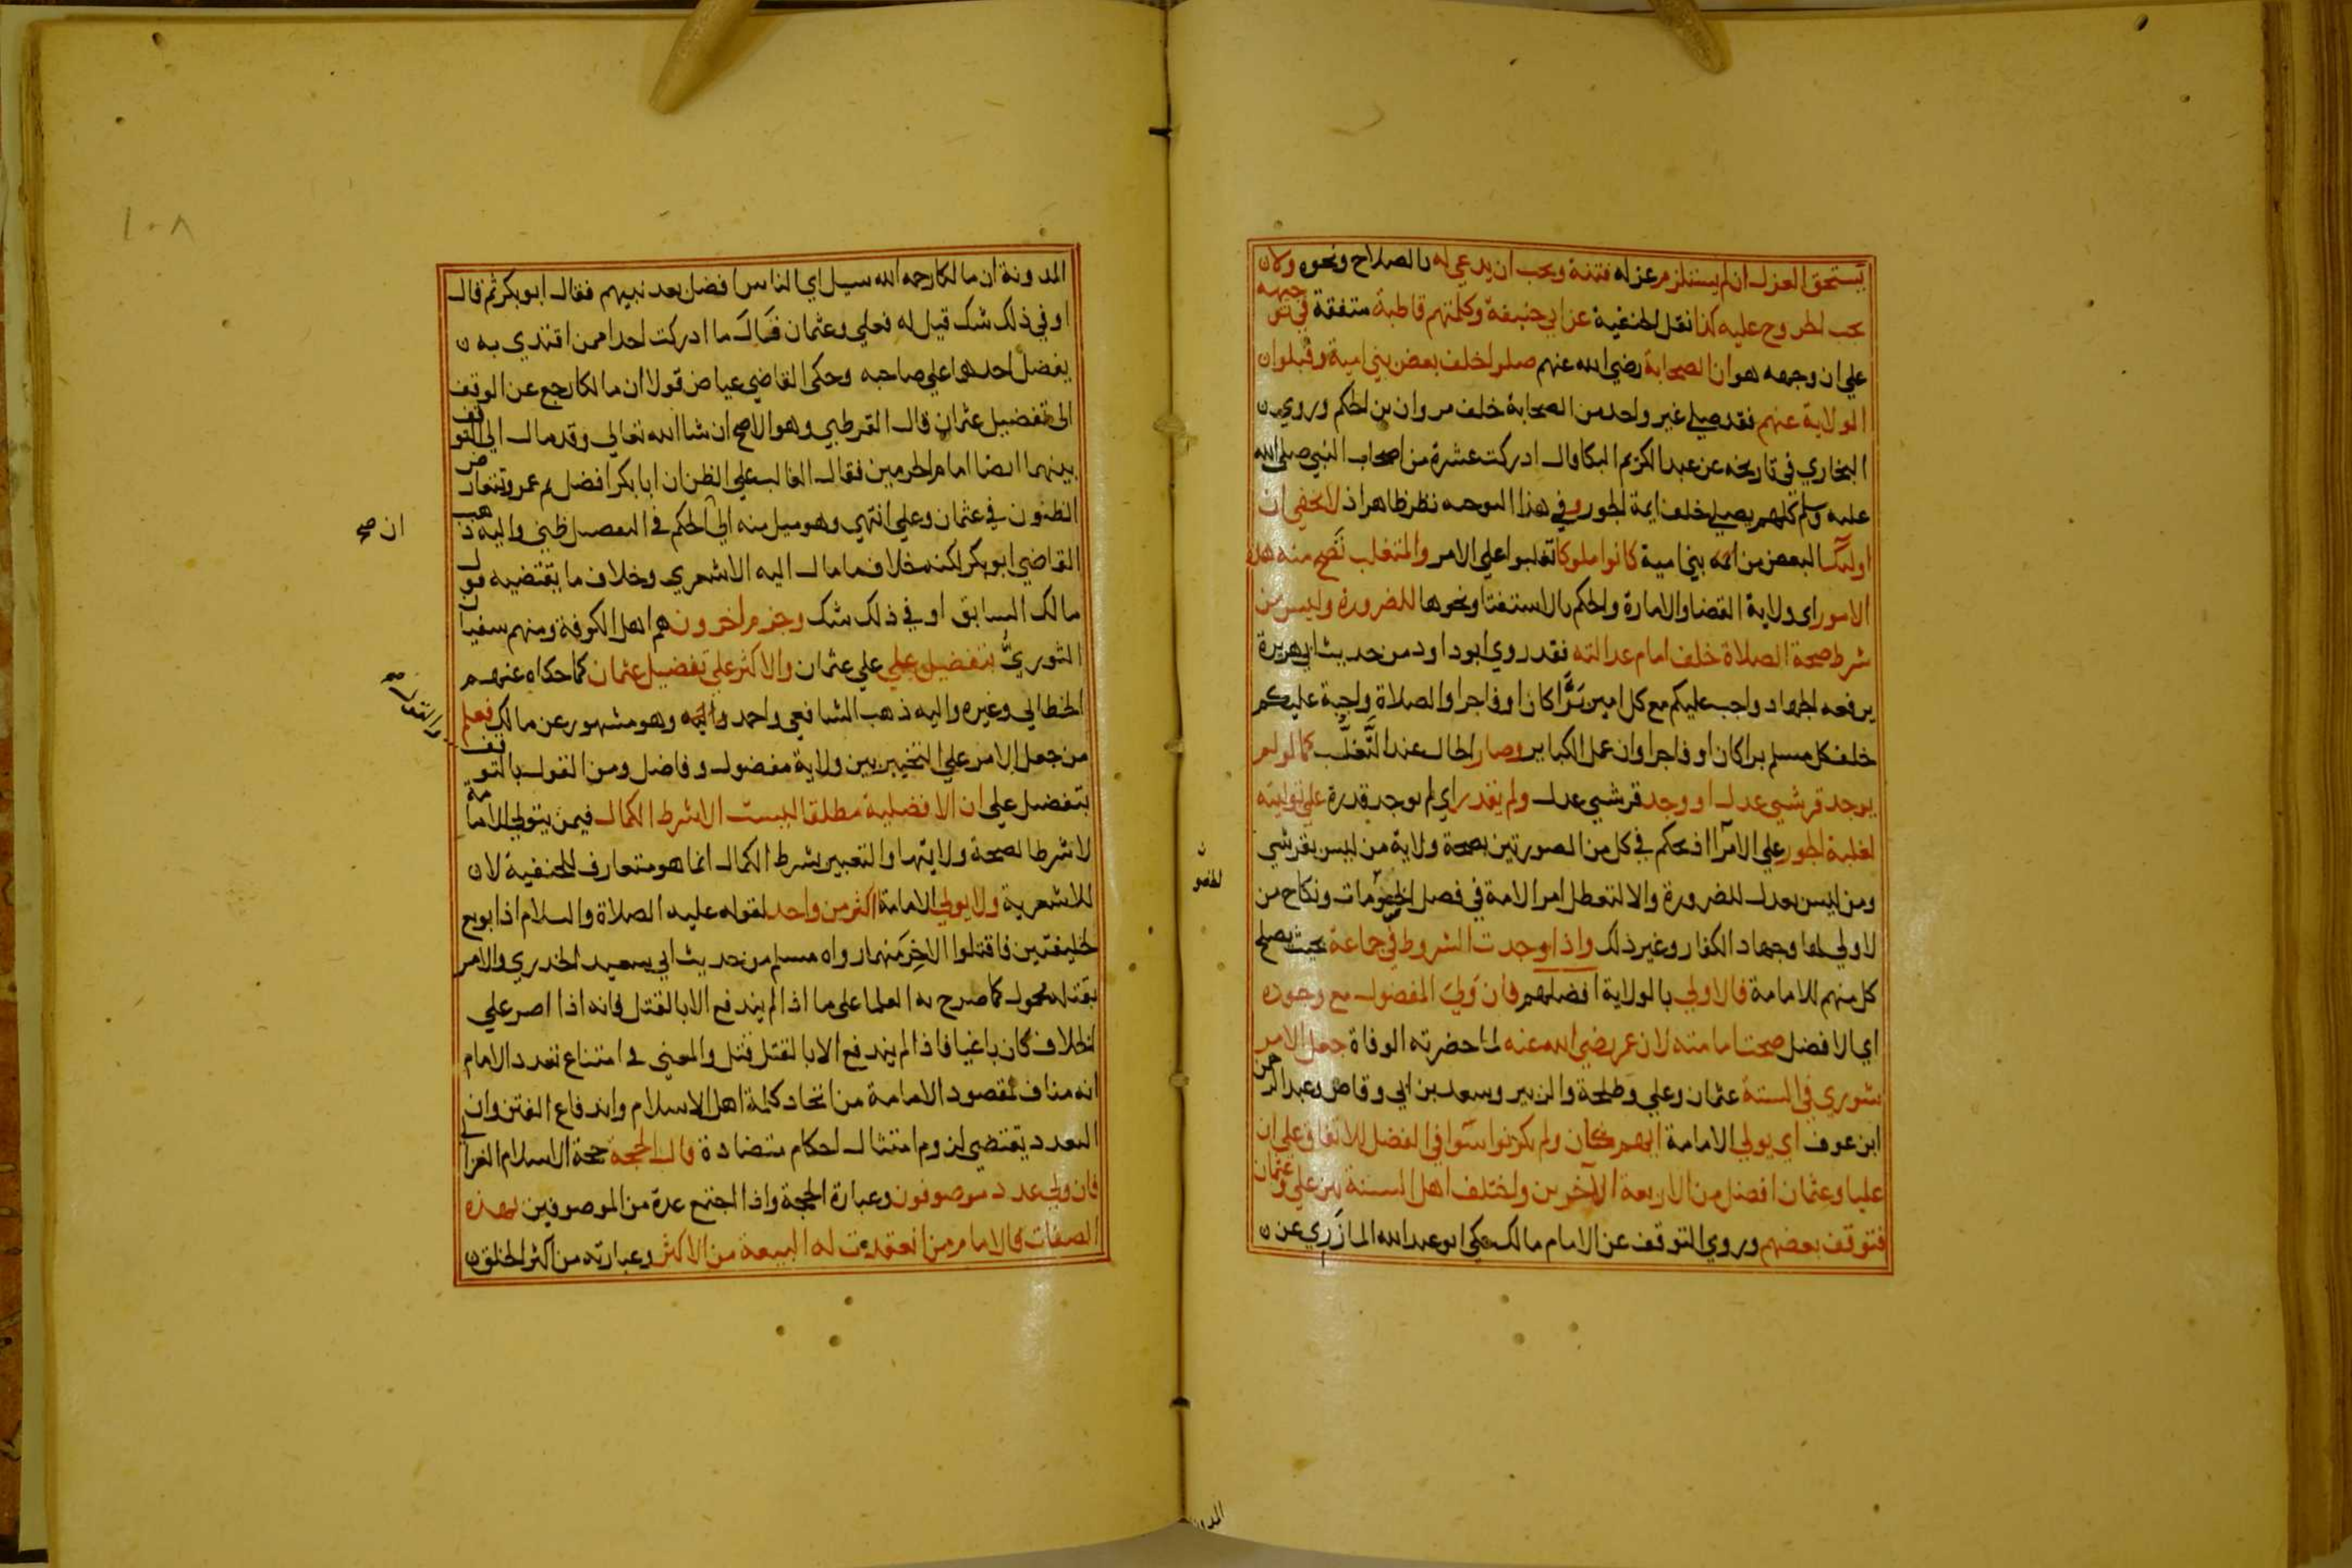 يستحق العزل ان لم يستلزم عزله فتنة ويجب ان يدعي له بالصلاح ونحوه ولا
يجب الخروج عليه كذا نقل الحنفية عن ابي حنيفة وكلمتهم قاطبة متفقة في توجيهه
علي ان وجهه هو ان الصحابة رضي الله عنهم صلوا خلف بعض بني امية وقبلوا
الولاية عنهم فقد صلي غير واحد من الصحابة خلف مروان بن الحكم وروي
البخاري في تاريخه عن عبد الكريم البكا قال ادركت عشرة من اصحاب النبي صلى الله
عليه وسلم كلهم يصلي خلف ايمة الجور وفي هذا التوجيه نظر ظاهر اذ لا يخفي ان
اوليك البعض من ائمه بني امية كانوا ملوكا تغلبوا علي الامر والمتغلب تصح منه هذه
الامور اى ولاية القضا والامارة والحكم بالاستفتا ونحوها للضرورة وليس من
شرط صحة الصلاة خلف امام عدالته فقد روي ابو داود من حديث ابي هريرة
يرفعه الجهاد واجب عليكم مع كل امير بَرًّا كان او فاجرا والصلاة واجبة عليكم
خلف كل مسلم برا كان او فاجرا وان عمل الكباير وصار الحال عند التَّغلُّب كما لو لم
يوجد قرشي عدل او وجد قرشي عدل ولم يقدر اي لم توجد قدرة علي توليته
لغلبة الجور علي الامرا اذ يحكم في كل من الصورتين بصحة ولاية من ليس بقرشي
ومن ليس بعدل للضرورة والا لتعطل امر الامة في فصل الخصومات ونكاح من
لا ولي لها وجهاد الكفار وغير ذلك واذا وجدت الشروط في جماعة بحيث يصلح
كل منهم للامامة فالاولي بالولاية افضلهم فان وَلِيَ المفضول مع وجوده
اي الافضل صحت امامته لان عمر رضي الله عنه لما حضرته الوفاة جعل الامر
شوري في الستة عثمان وعلي وطلحة والزبير وسعد بن ابي وقاص وعبد الرحمن
ابن عوف اي يولي الامامة ايهم كان ولم يكونوا سَوا في الفضل للاتفاق علي ان
عليا وعثمان افضل من الاربعة الآخرين واختلف اهل السنة بين علي وعثمان
فتوقف بعضهم وروي التوقف عن الامام مالك حكي ابو عبد الله المازَري عن
المدونة ان مالكا رحمه الله سيل اي الناس افضل بعد نبيهم فقال ابو بكر ثم قال
او في ذلك شك قيل له فعلي وعثمان فقال ما ادركت احدا ممن اقتدي به
يفضل احدهما علي صاحبه وحكي القاضي عياض قولا ان مالكا رجع عن الوقف
الى تفضيل عثمان قال القرطبي وهو الاصح ان شا الله تعالي وقد مال الي التوقف
بينهما ايضا امام الحرمين فقال الغالب علي الظن ان ابا بكر افضل ثم عمر وتتعارض
الظنون في عثمان وعلي انتهي وهو ميل منه الي الحكم في التفضيل ظني واليه ذهب
القاضي ابو بكر لكنه خلاف ما مال اليه الاشعري وخلاف ما يقتضيه قول
مالك السابق او في ذلك شك وجزم اخرون هم اهل الكوفة ومنهم سفيان
الثوريُّ بتفضيل علي علي عثمان والاكثر علي تفضيل عثمان كما حكاه عنهم
الخطابي وغيره واليه ذهب الشافعي واحمد وائمه وهو مشهور عن مالك فعلم
من جعل الامر علي التخيير بين ولاية مفضول وفاضل ومن القول بالتوقف
بتفضل علي ان الافضلية مطلقا ليست الا شرط الكمال فيمن يتولي الامامة
لا شرط الصحة ولايتها والتعبير بشرط الكمال انما هو متعارف للحنفية لا
للاشعرية ولا يولي الامامة اكثر من واحد لقوله عليه الصلاة والسلام اذا بويع
لخليفتين فاقتلوا الاخِر منهما رواه مسلم من حديث ابي سعيد الخدري والامر
بقتله محمول كما صرح به العلما علي ما اذا لم يندفع الا بالقتل فانه اذا اصر علي
الخلاف كان باغيا فاذا لم يندفع الا بالقتل قتل والمعني في امتناع تعدد الامام
انه مناف لمقصود الامامة من اتحاد كلمة اهل الاسلام واندفاع الفتن وان
التعدد يقتضي لزوم امتثال احكام متضادة قال الحجة حجة الاسلام الغزالي
فان ولي عدد موصوفون وعبارة الحجة واذا اجتمع عدة من الموصوفين بهذه
الصفات فالامام من انعقدت له البيعة من الاكثر وعبارته من اكثر الخلق
ان صح
والقول صح
المدونة
١٠٨